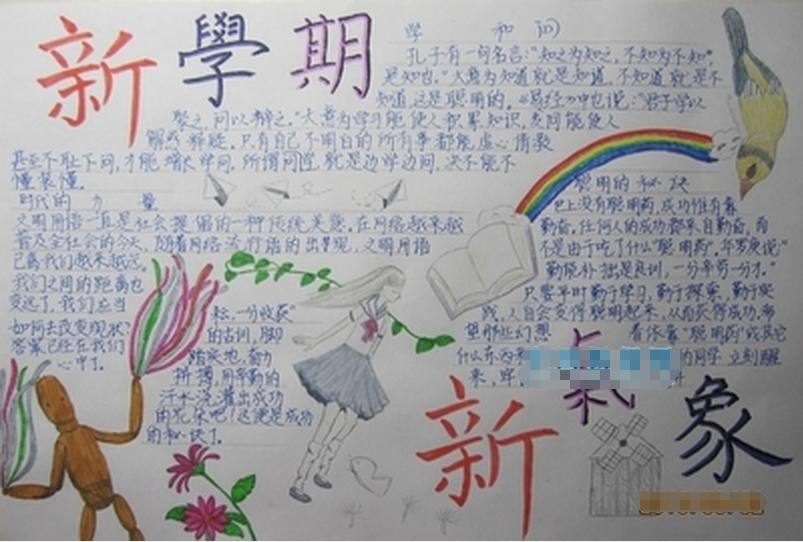 新學期
学 和 问
孔子有一句名言：“知之为知之，不知为不知”，
是知也。”大意为知道就是知道，不知道就是不
知道，这是聪明的。《易经》中也说：“君子学以
聚之，问以辩之。”大意为学习能使人积累知识，发问能使人
解惑释疑。只有自己不明白的所有事都能虚心请教
甚至不耻下问，才能增长学问。所谓问学，就是边学边问，决不能不
懂装懂。
时代的力量
文明用语一直是社会提倡的一种传统美德。在网络越来越
普及全社会的今天，随着网络流行语的出现，文明用语
已离我们越来越远。
我们之间的距离也
变远了。我们应当
如何去改变现状？
答案已经在我们
心中了。
聪明的秘诀
世上没有聪明药，成功惟有靠
勤奋，任何人的成功都来自勤奋，而
不是由于吃了什么“聪明药”。华罗庚说：“
勤能补拙是良训，一分辛劳一分才。”
只要平时勤于学习，勤于探索，勤于实
践，人自会变得聪明起来，从而获得成功。希
望那些幻想 着依靠“聪明药”或其它
什么 的同学立刻醒
来，
耘，一分收获”
的古训，脚
踏实地，奋力
拼搏，用辛勤的
汗水浇灌出成功
的花朵吧！这便是成功
的秘诀了。
新氣象